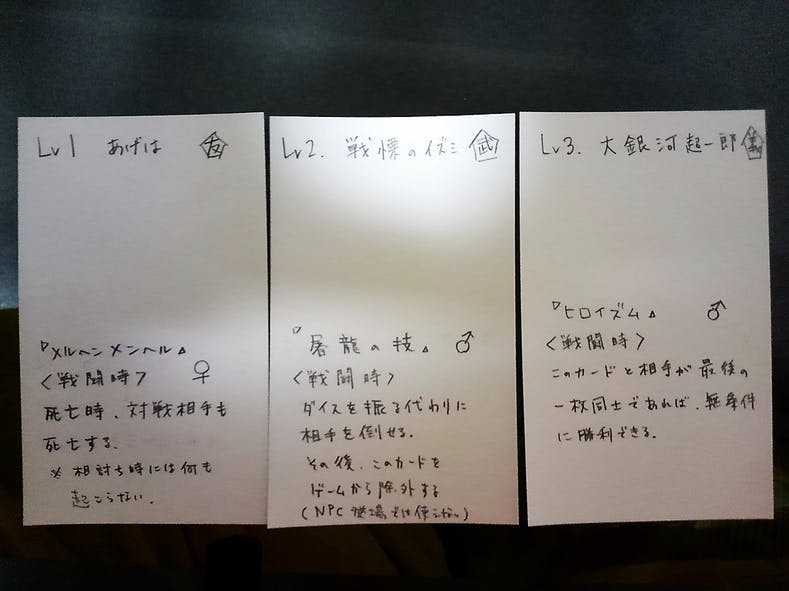 Lv1 あげは 友
『メルヘンメンヘル』
<戦闘時> ♀
死亡時、対戦相手も
死亡する。
※ 相討ち時には何も
起こらない。
Lv2. 戦慄のイズミ 武
『屠龍の技』 ♂
<戦闘時>
ダイスを振る代わりに
相手を倒せる。
その後、このカードを
ゲームから除外する
(NPC 登場では使えない)
Lv3. 大銀河超一郎
『ヒロイズム』 ♂
<戦闘時>
このカードと相手が最後の
一枚同士であれば、無条件
に勝利できる。